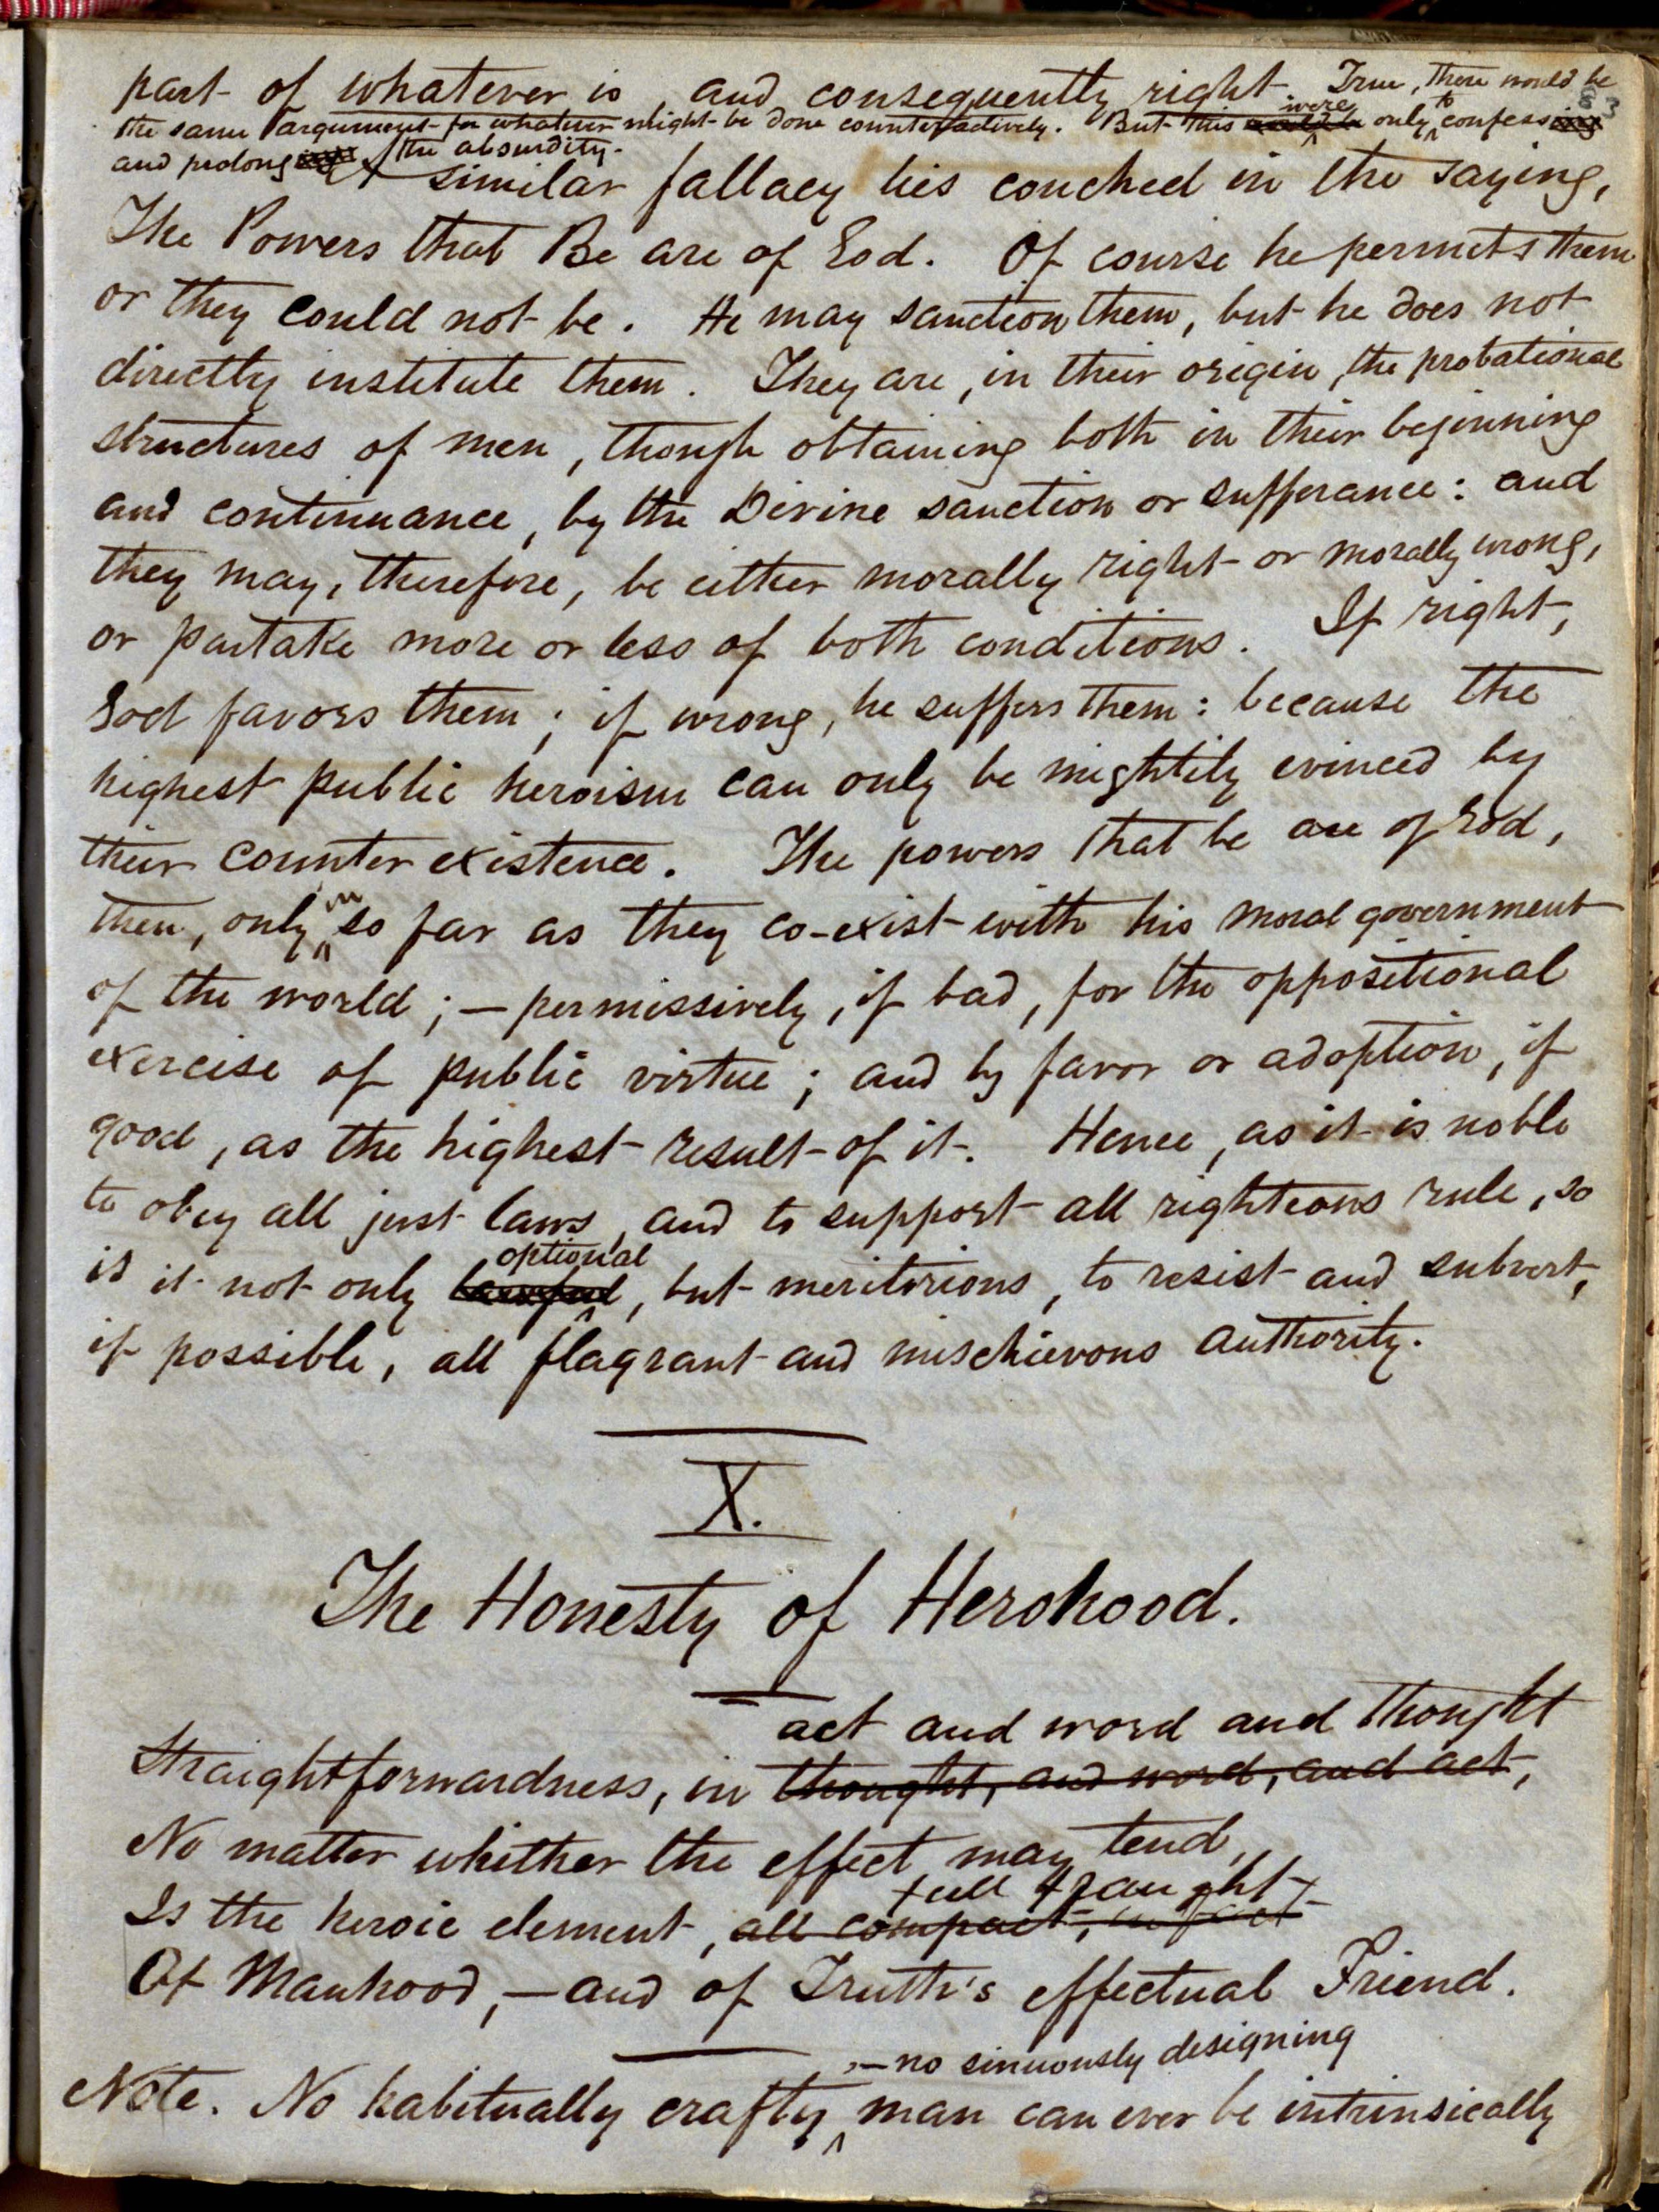 part of whatever is, and consequently right. True, there would be
the same argument for whatever might be done counteractively. But this would be were only to confessing
and prolonging the absurdity.
A similar fallacy lies couched in the saying,
The Powers that Be are of God. Of course he permits them
or they could not be. He may sanction them, but he does not
directly institute them. They are, in their origin, the probational
structures of men, though obtaining both in their beginning
and continuance, by the Divine sanction or sufferance: and
they may, therefore, be either morally right or morally wrong,
or partake more or less of both conditions. If right,
God favors them; if wrong, he suffers them: because the
highest public heroism can only be mightily evinced by
their counter existence. The powers that be are of God,
then, only in so far as they co-exist with his moral government
of the world;—permissively, if bad, for the oppositional
exercise of public virtue; and by favor or adoption, if
good, as the highest result of it. Hence, as it is noble
to obey all just laws, and to support all righteous rule, so
optional
is it not only lawful, but meritorious, to resist and subvert,
if possible, all flagrant and mischievous authority.
X.
The Honesty of Herohood.
act and word and thought
Straightforwardness, in thought, and word, and act,
No matter whither the effect may tend,
full fraught
Is the heroic element, all compact, in fact
Of Manhood,—and of Truth's effectual Friend.
,—no sinuously designing
Note. No habitually crafty man can ever be intrinsically